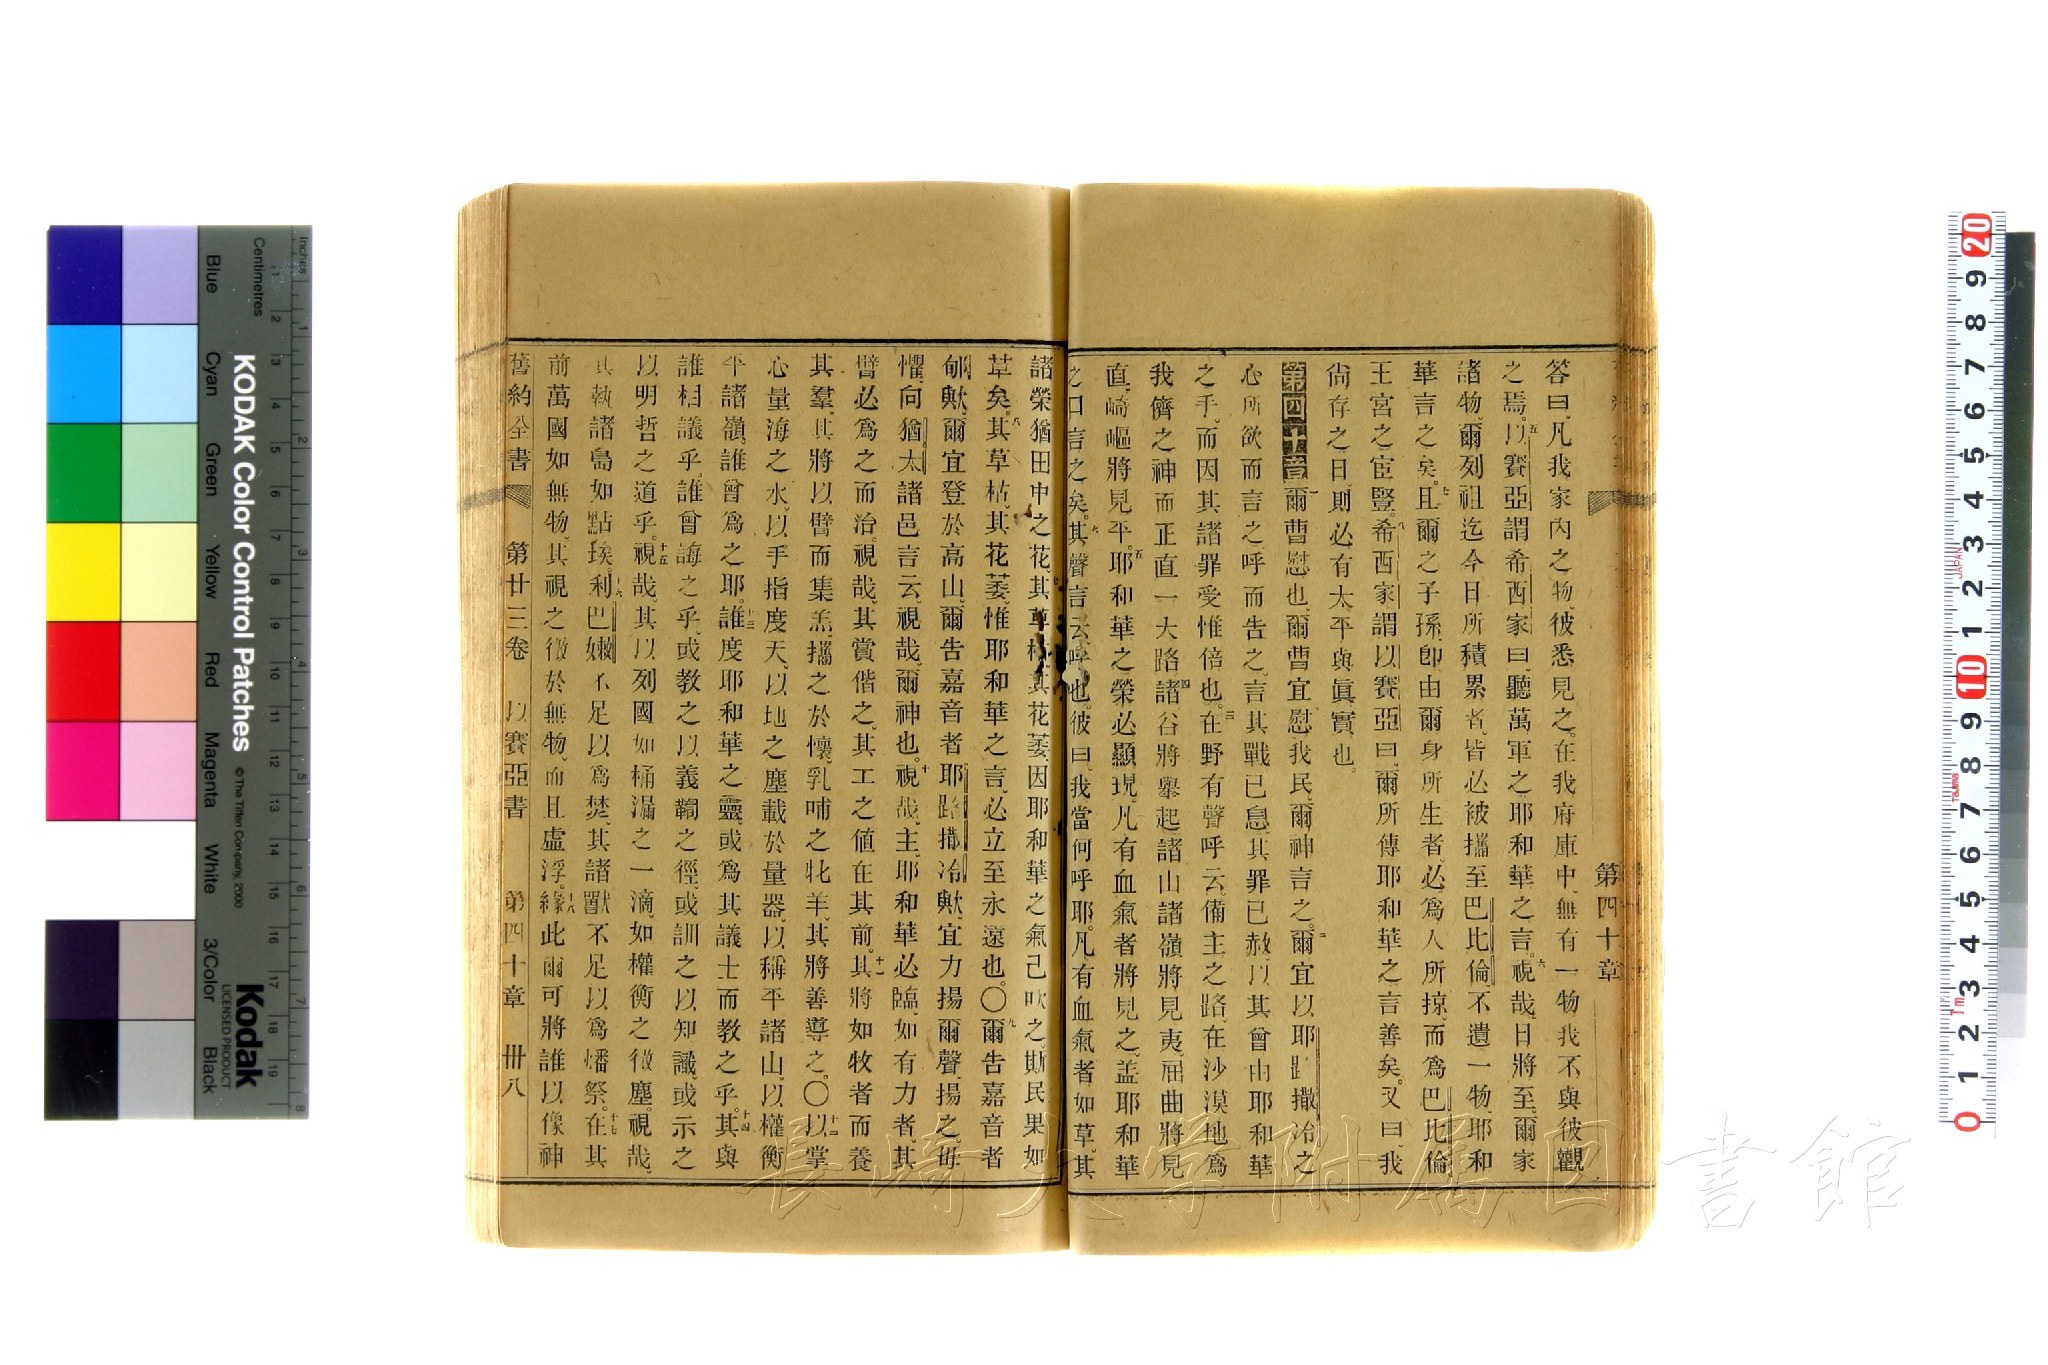 第四十章
答曰、凡我家內之物、彼悉見之。在我府庫中、無有一物我不與彼觀
之焉。五以賽亞謂希西家曰、聽萬軍之耶和華之言。六視哉、日將至、爾家
諸物、爾列祖迄今日所積累者、皆必被攜至巴比倫、不遺一物、耶和
華言之矣。七且爾之子孫、卽由爾身所生者、必為人所掠、而為巴比倫
王宮之宦豎。八希西家謂以賽亞曰、爾所傳耶和華之言善矣。又曰、我
尙存之日、則必有太平與眞實也。
第四十章一爾曹慰也、爾曹宜慰我民、爾神言之。二爾宜以耶路撒冷之
心所欲而言之、呼而吿之、言其戰已息、其罪已赦、以其曾由耶和華
之手、而因其諸罪受惟倍也。三在野有聲呼云、備主之路、在沙漠地為
我儕之神而正直一大路。四諸谷將舉起、諸山諸嶺將見夷、屈曲將見
直、崎嶇將見平。五耶和華之榮必顯現、凡有血氣者將見之、蓋耶和華
之口言之矣。六其聲言云、呼也。彼曰、我當何呼耶。凡有血氣者如草、其
諸榮猶田中之花。七其草枯、其花萎、因耶和華之氣已吹之、斯民果如
草矣。八其草枯、其花萎、惟耶和華之言、必立至永遠也。〇九爾吿嘉音者
郇歟、爾宜登於高山、爾吿嘉音者耶路撒冷歟、宜力揚爾聲、揚之毋
懼、向猶太諸邑言云、視哉、爾神也。十視哉、主耶和華必臨、如有力者、其
臂必為之而治。視哉、其賞偕之、其工之值在其前。十一其將如牧者而養
其羣、其將以臂而集羔、攜之於懷、乳哺之牝羊、其將善導之。〇十二以掌
心量海之水、以手指度天、以地之塵載於量器、以稱平諸山、以權衡
平諸嶺、誰曾為之耶。十三誰度耶和華之靈、或為其議士而教之乎。十四其與
誰相議乎、誰曾誨之乎、或教之以義嗣之徑、或訓之以知識、或示之
以明哲之道乎。十五視哉、其以列國如桶滿之一滴、如權衡之微塵。視哉、
其執諸島如點埃。十六利巴嫩不足以為焚、其諸獸不足以為燔祭。十七在其
前萬國如無物、其視之微於無物、而且虛浮。十八緣此爾可將誰以像神
舊約全書 第廿三卷 以賽亞書 第四十章 卌八
長崎大学附属図書館
KODAK Color Control Patches
© The Tiffen Company, 2000
Kodak
LICENSED PRODUCT
Inches
Centimetres
Blue
Cyan
Green
Yellow
Red
Magenta
White
3/Color
Black
1 2 3 4 5 6 7 8
1 2 3 4 5 6 7 8 9 10 11 12 13 14 15 16 17 18 19
20 9 8 7 6 5 4 3 2 1 10 9 8 7 6 5 4 3 2 1 0
JAPAN
TAJIMA
1m